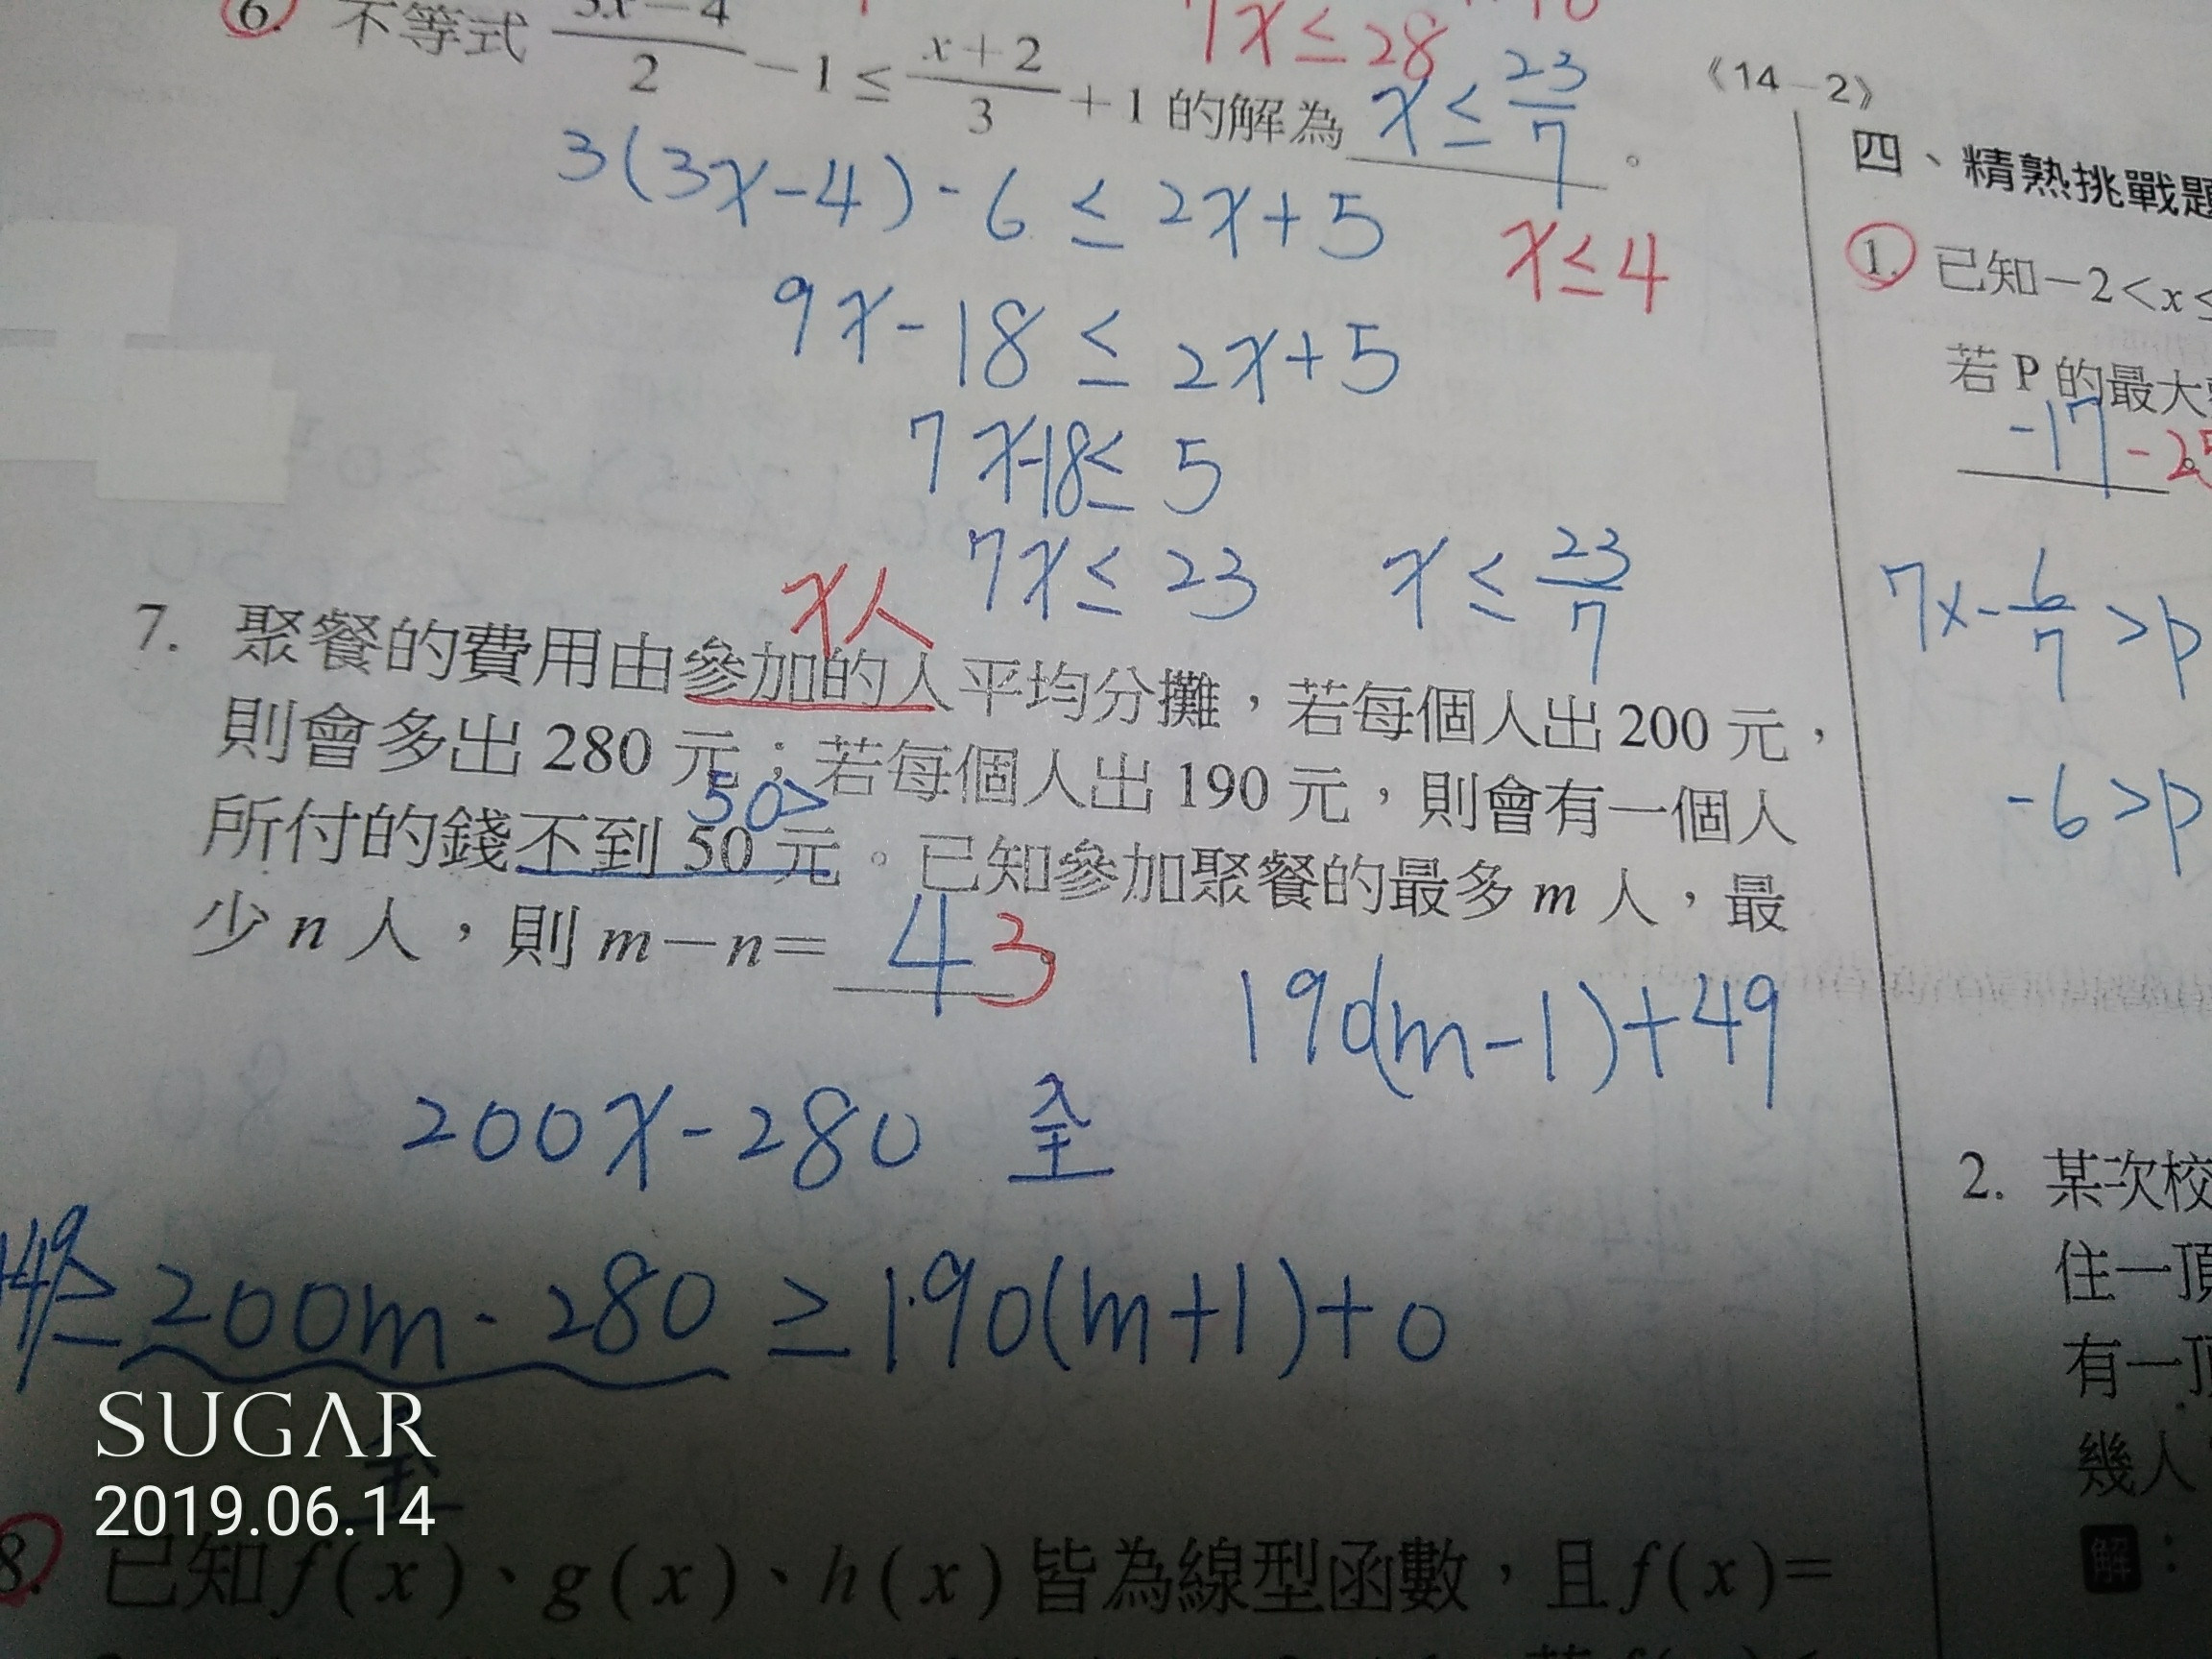 7x≤28
6. 不等式 (3x-4)/2 -1≤ (x+2)/3 +1 的解為 x≤23/7 。
x≤4
3(3x-4)-6≤2x+5
9x-18≤2x+5
7x-18≤5
7x≤23 x≤23/7
x人
7. 聚餐的費用由參加的人平均分攤，若每個人出 200 元，
則會多出 280 元；若每個人出 190 元，則會有一個人
50>
所付的錢不到 50 元。已知參加聚餐的最多 m 人，最
少 n 人，則 m-n= 4 3
190(m-1)+49
200x-280 全
49≥200m-280≥190(m+1)+0
全
SUGAR
2019.06.14
8. 已知 f(x)、g(x)、h(x) 皆為線型函數，且 f(x)=
《14-2》
四、精熟挑戰題
1. 已知-2<x≤
若 P 的最大
-17 -25
7x-6/7>p
-6>p
2. 某次校
住一頂
有一頂
幾人
解：